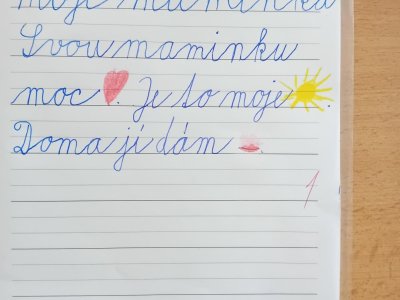 moje maminka
Svou maminku
moc . Je to moje .
Doma jí dám .
1